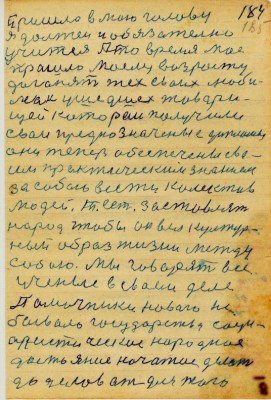 184
185
Пришло в мою голову
Я должен и обязательно
учится Это время мое
прашло моему возрасту
догонят тех своих люби
мых ушедших товари
щей которые получили
свои предназначение
они тепер обеспечены сво
им практическим знанием
за собою вести колектив
людей. Т. ест. заставлят
народ чтобы он вел культур
ный образ жизни между
собою. Мы говорят все
ученые в своем деле
Памочники новаго не
бывало государства соци
аристическое народное
достояние начатое
для того